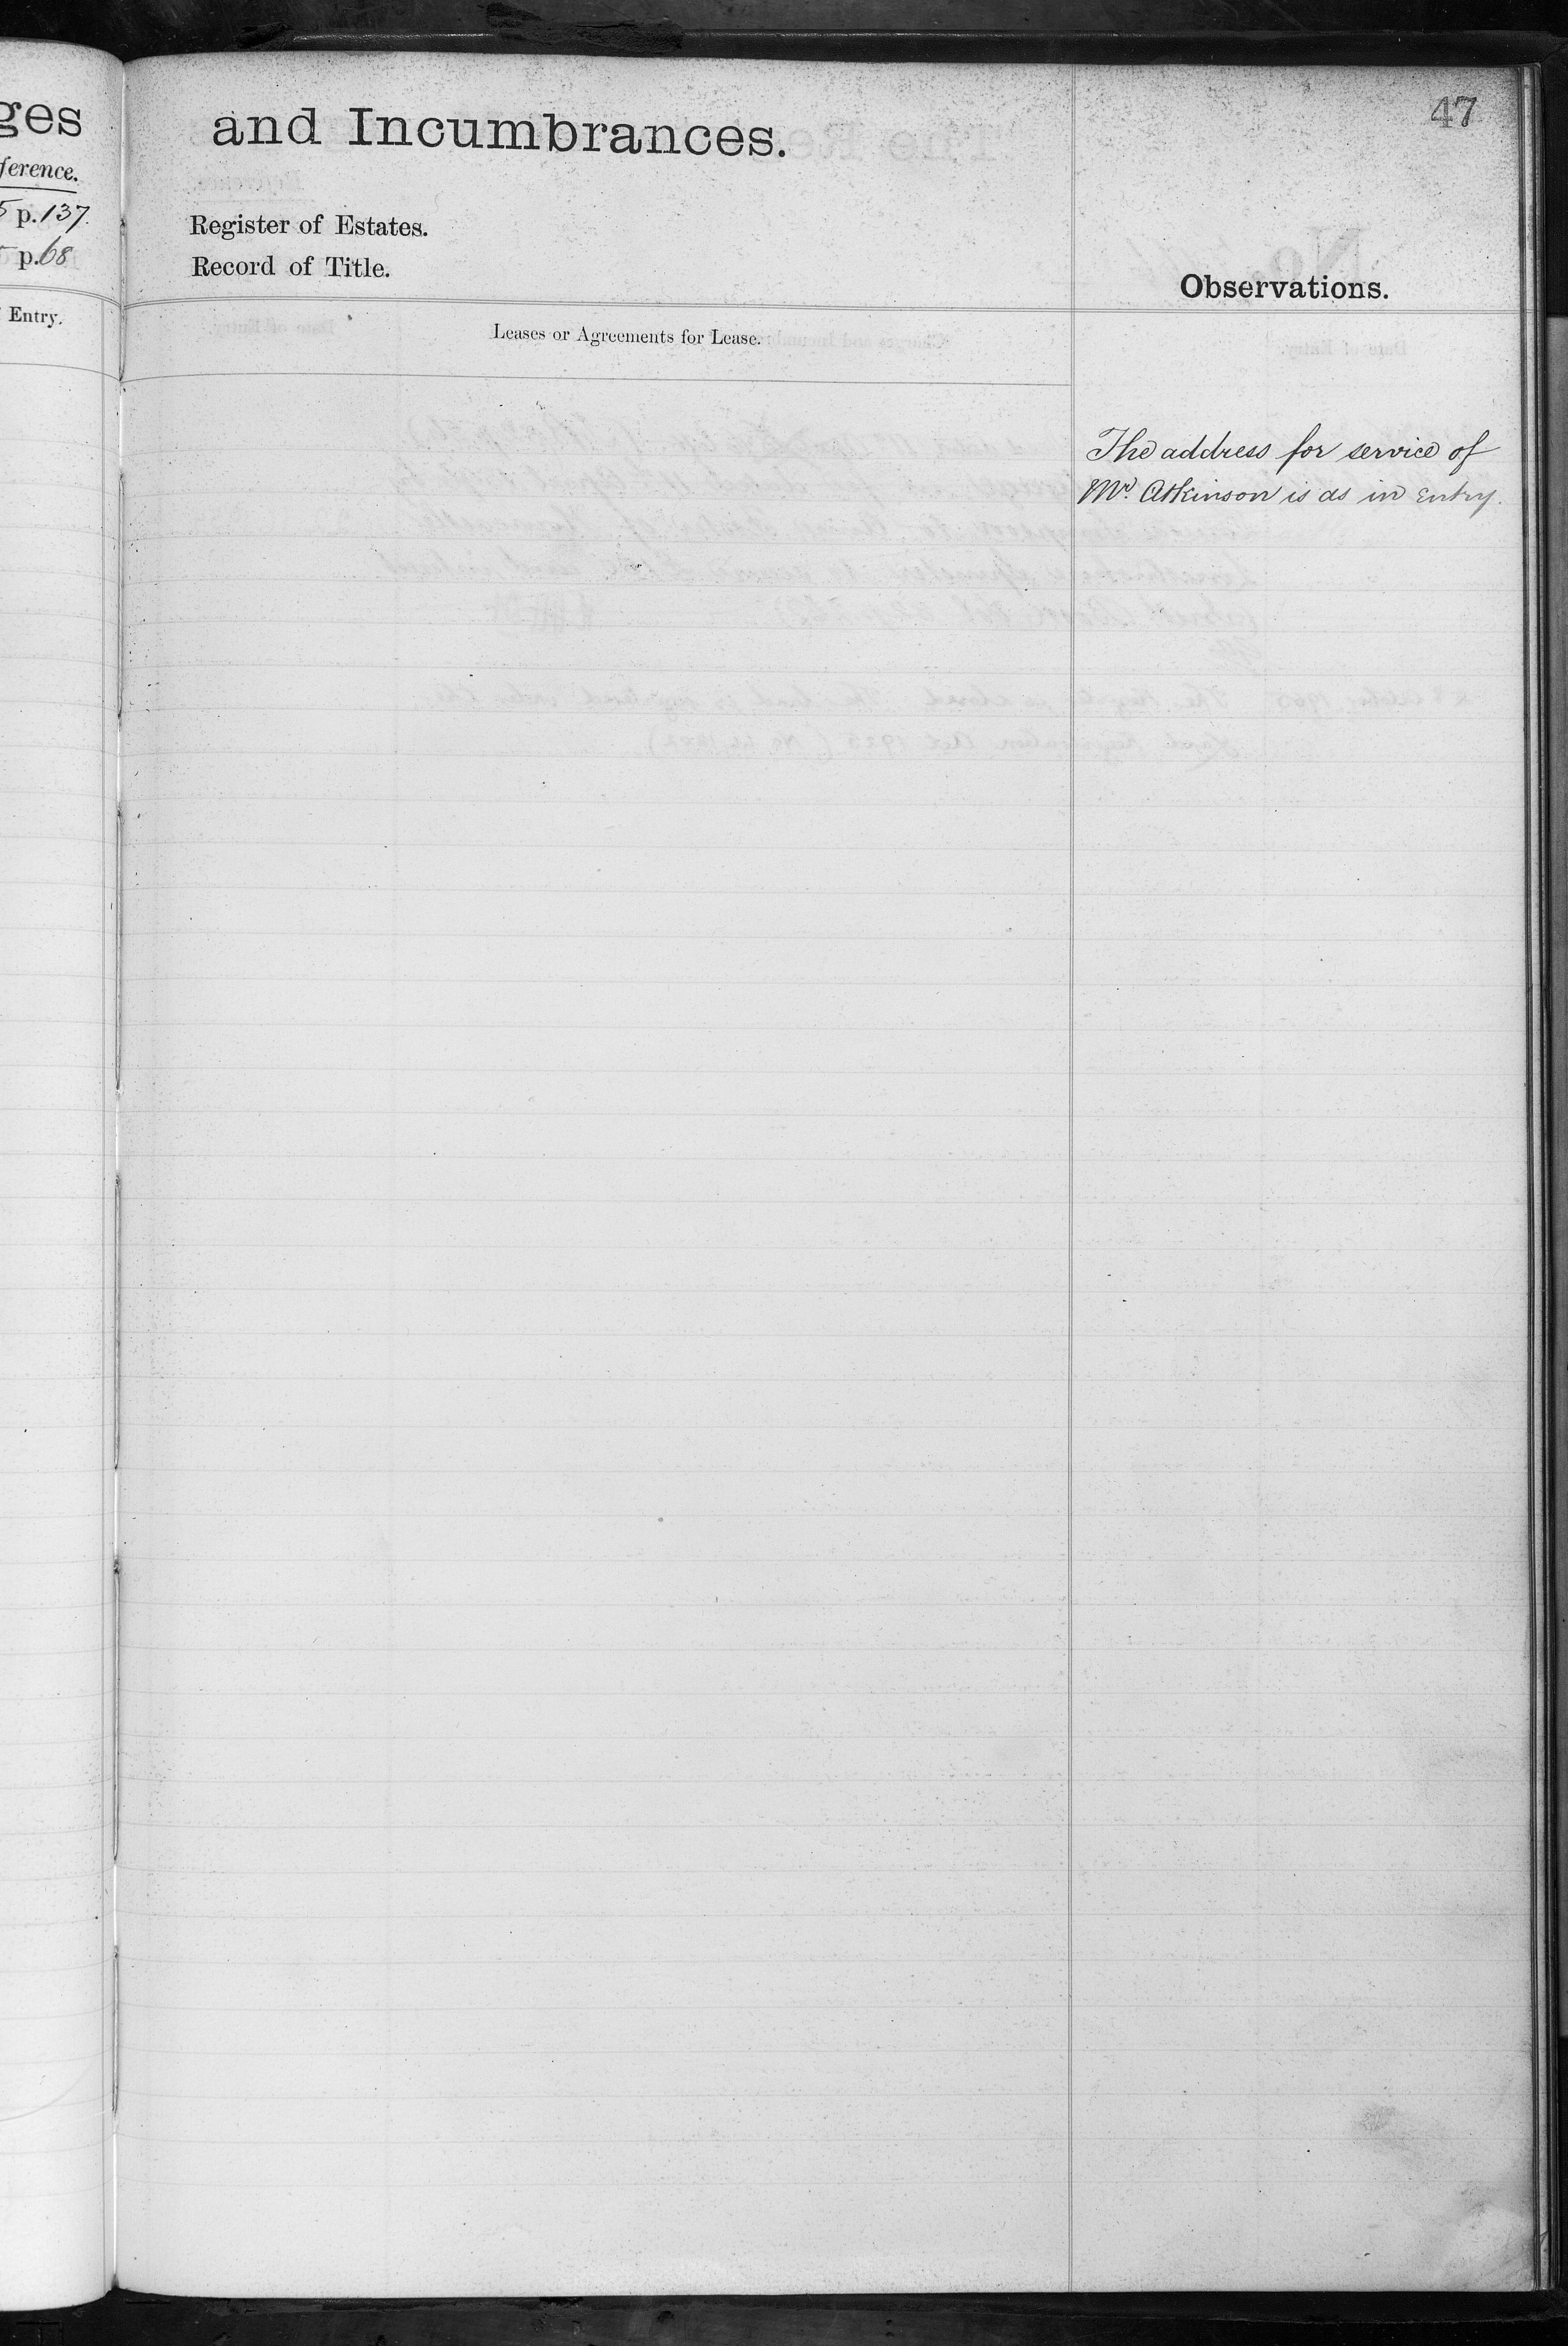 ges
ference.
5 p. 137.
p. 68
Entry.
47
and Incumbrances.
Register of Estates.
Record of Title.
Observations.
Leases or Agreements for Lease.
The address for service of
Mr. Atkinson is as in Entry.